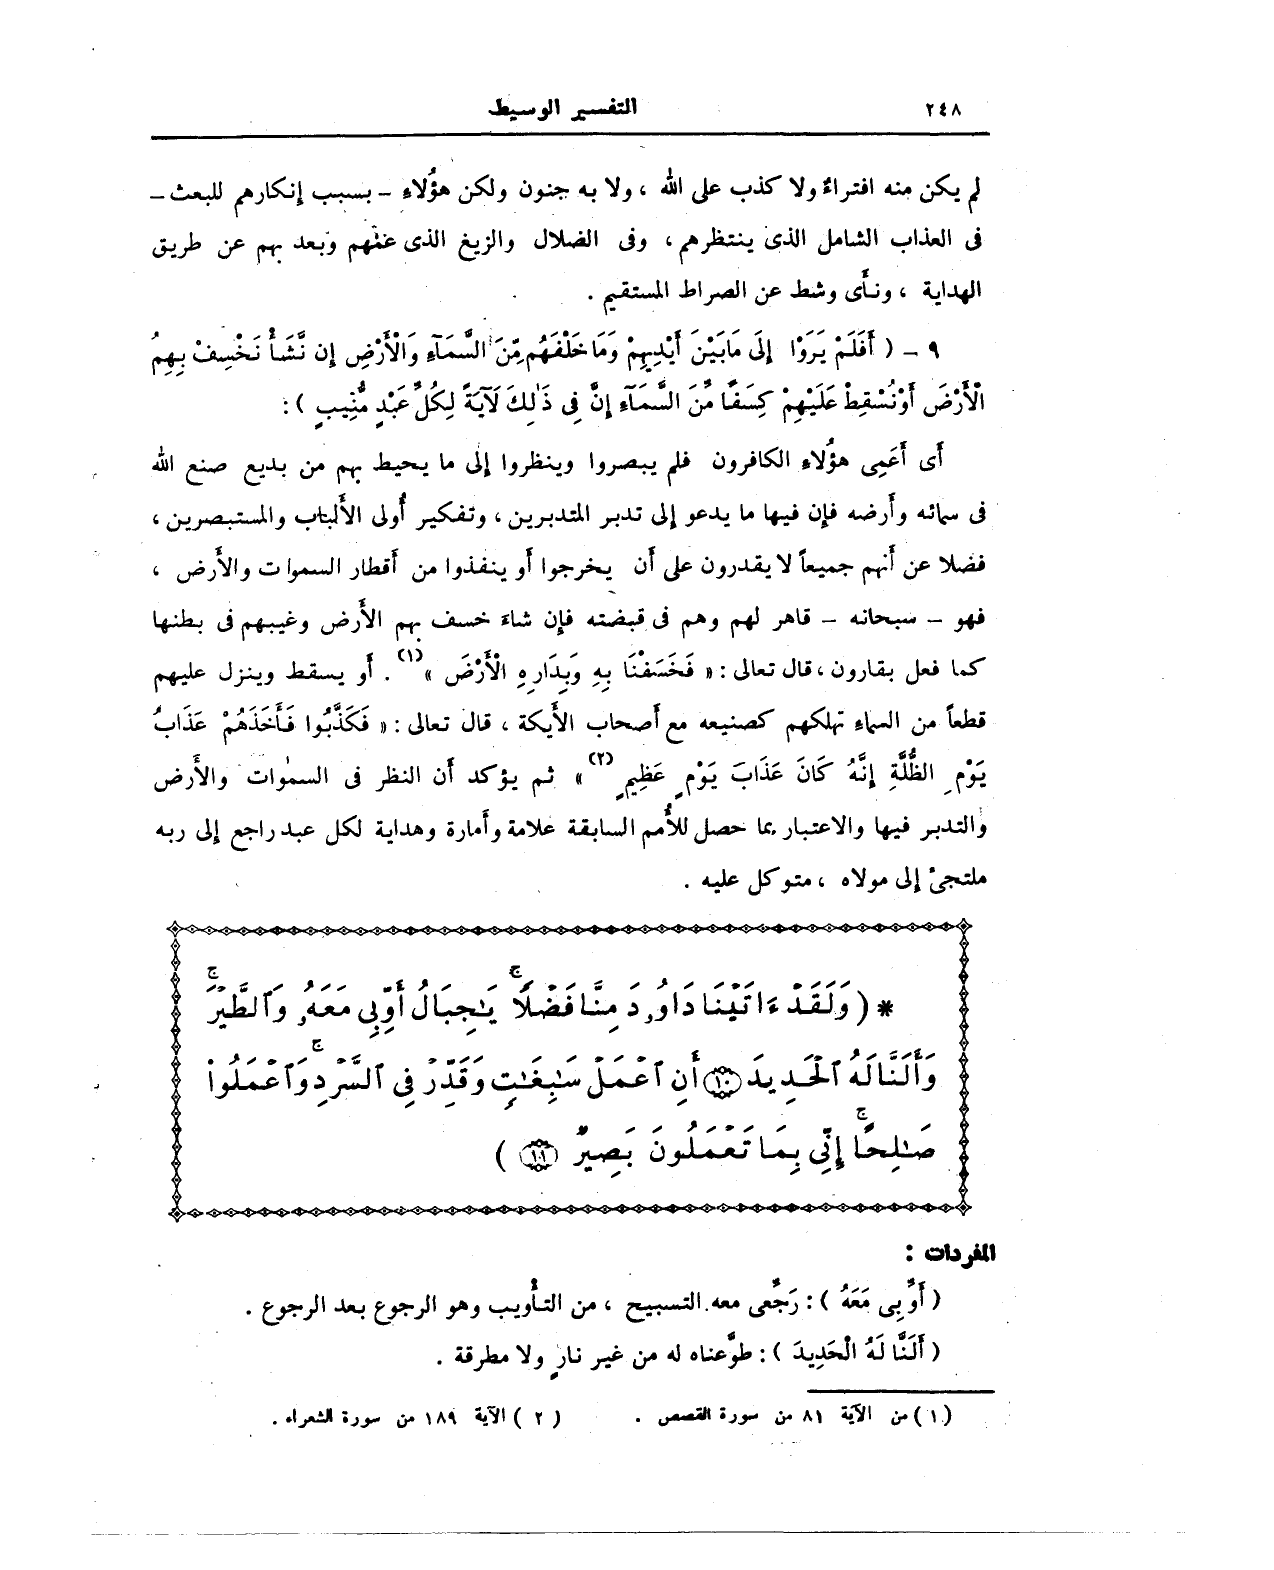 ٢٤٨
التفسير الوسيط
لم يكن منه افتراءٌ ولا كذب على الله ، ولا به جنون ولكن هؤُلاءِ – بسبب إنكارهم للبعث –
فى العذاب الشامل الذى ينتظرهم ، وفى الضلال والزيغ الذى غشيهم وبعد بهم عن طريق
الهداية ، ونأَى وشط عن الصراط المستقيم .
٩ – ( أَفَلَمْ يَرَوْا إِلَى مَا بَيْنَ أَيْدِيهِمْ وَمَا خَلْفَهُم مِّنَ السَّمَآءِ وَالْأَرْضِ إِن نَّشَأْ نَخْسِفْ بِهِمُ
الْأَرْضَ أَوْ نُسْقِطْ عَلَيْهِمْ كِسَفًا مِّنَ السَّمَآءِ إِنَّ فِى ذَٰلِكَ لَآيَةً لِكُلِّ عَبْدٍ مُّنِيبٍ ) :
أَى أَعَمِى هؤُلاءِ الكافرون فلم يبصروا وينظروا إلى ما يحيط بهم من بديع صنع الله
فى سمائه وأَرضه فإِن فيها ما يدعو إلى تدبر المتدبرين ، وتفكير أُولى الأَلباب والمستبصرين ،
فضلا عن أَنهم جميعاً لا يقدرون على أَن يخرجوا أَو ينفذوا من أَقطار السموات والأَرض ،
فهو – سبحانه – قاهر لهم وهم فى قبضته فإِن شاءَ خسف بهم الأَرض وغيبهم فى بطنها
كما فعل بقارون ، قال تعالى : « فَخَسَفْنَا بِهِ وَبِدَارِهِ الْأَرْضَ »(١) . أَو يسقط وينزل عليهم
قطعاً من السماءِ تهلكهم كصنيعه مع أَصحاب الأَيكة ، قال تعالى : « فَكَذَّبُوا فَأَخَذَهُمْ عَذَابُ
يَوْمِ الظُّلَّةِ إِنَّهُ كَانَ عَذَابَ يَوْمٍ عَظِيمٍ (٢) » ثم يؤكد أَن النظر فى السمٰوات والأَرض
والتدبر فيها والاعتبار بما حصل للأُمم السابقة علامة وأَمارة وهداية لكل عبد راجع إلى ربه
ملتجئ إلى مولاه ، متوكل عليه .
* ( وَلَقَدْ ءَاتَيْنَا دَاوُۥدَ مِنَّا فَضْلًاۖ يَـٰجِبَالُ أَوِّبِى مَعَهُۥ وَٱلطَّيْرَۖ
وَأَلَنَّا لَهُ ٱلْحَدِيدَ ۝١٠ أَنِ ٱعْمَلْ سَـٰبِغَـٰتٍ وَقَدِّرْ فِى ٱلسَّرْدِۖ وَٱعْمَلُوا۟
صَـٰلِحًاۖ إِنِّى بِمَا تَعْمَلُونَ بَصِيرٌ ۝١١ )
المفردات :
( أَوِّبِى مَعَهُ ) : رَجِّعى معه التسبيح ، من التأْويب وهو الرجوع بعد الرجوع .
( أَلَنَّا لَهُ الْحَدِيدَ ) : طوَّعناه له من غير نارٍ ولا مطرقة .
( ١ ) من الآية ٨١ من سورة القصص .
( ٢ ) الآية ١٨٩ من سورة الشعراء .